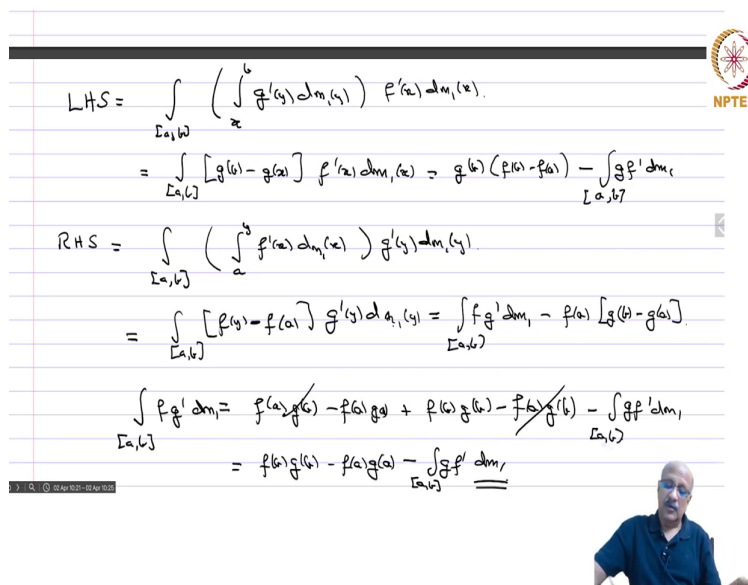 LHS = ∫_{[a,b]} ( ∫_x^b g'(y) dm_1(y) ) f'(x) dm_1(x).
NPTE
= ∫_{[a,b]} [g(b) - g(x)] f'(x) dm_1(x) = g(b) (f(b) - f(a)) - ∫_{[a,b]} g f' dm_1
RHS = ∫_{[a,b]} ( ∫_a^y f'(x) dm_1(x) ) g'(y) dm_1(y).
= ∫_{[a,b]} [f(y) - f(a)] g'(y) dm_1(y) = ∫_{[a,b]} f g' dm_1 - f(a) [g(b) - g(a)].
∫_{[a,b]} f g' dm_1 = f(a) g(b) - f(a) g(a) + f(b) g(b) - f(a) g(b) - ∫_{[a,b]} g f' dm_1
= f(b) g(b) - f(a) g(a) - ∫_{[a,b]} g f' dm_1
02 Apr 10:21 - 02 Apr 10:25